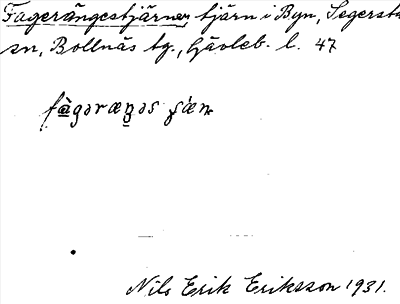 Fagerängestjärnen tjärn i Byn, Segersta
sn, Bollnäs tg., Gävleb. l. 47
Nils Erik Eriksson 1931.